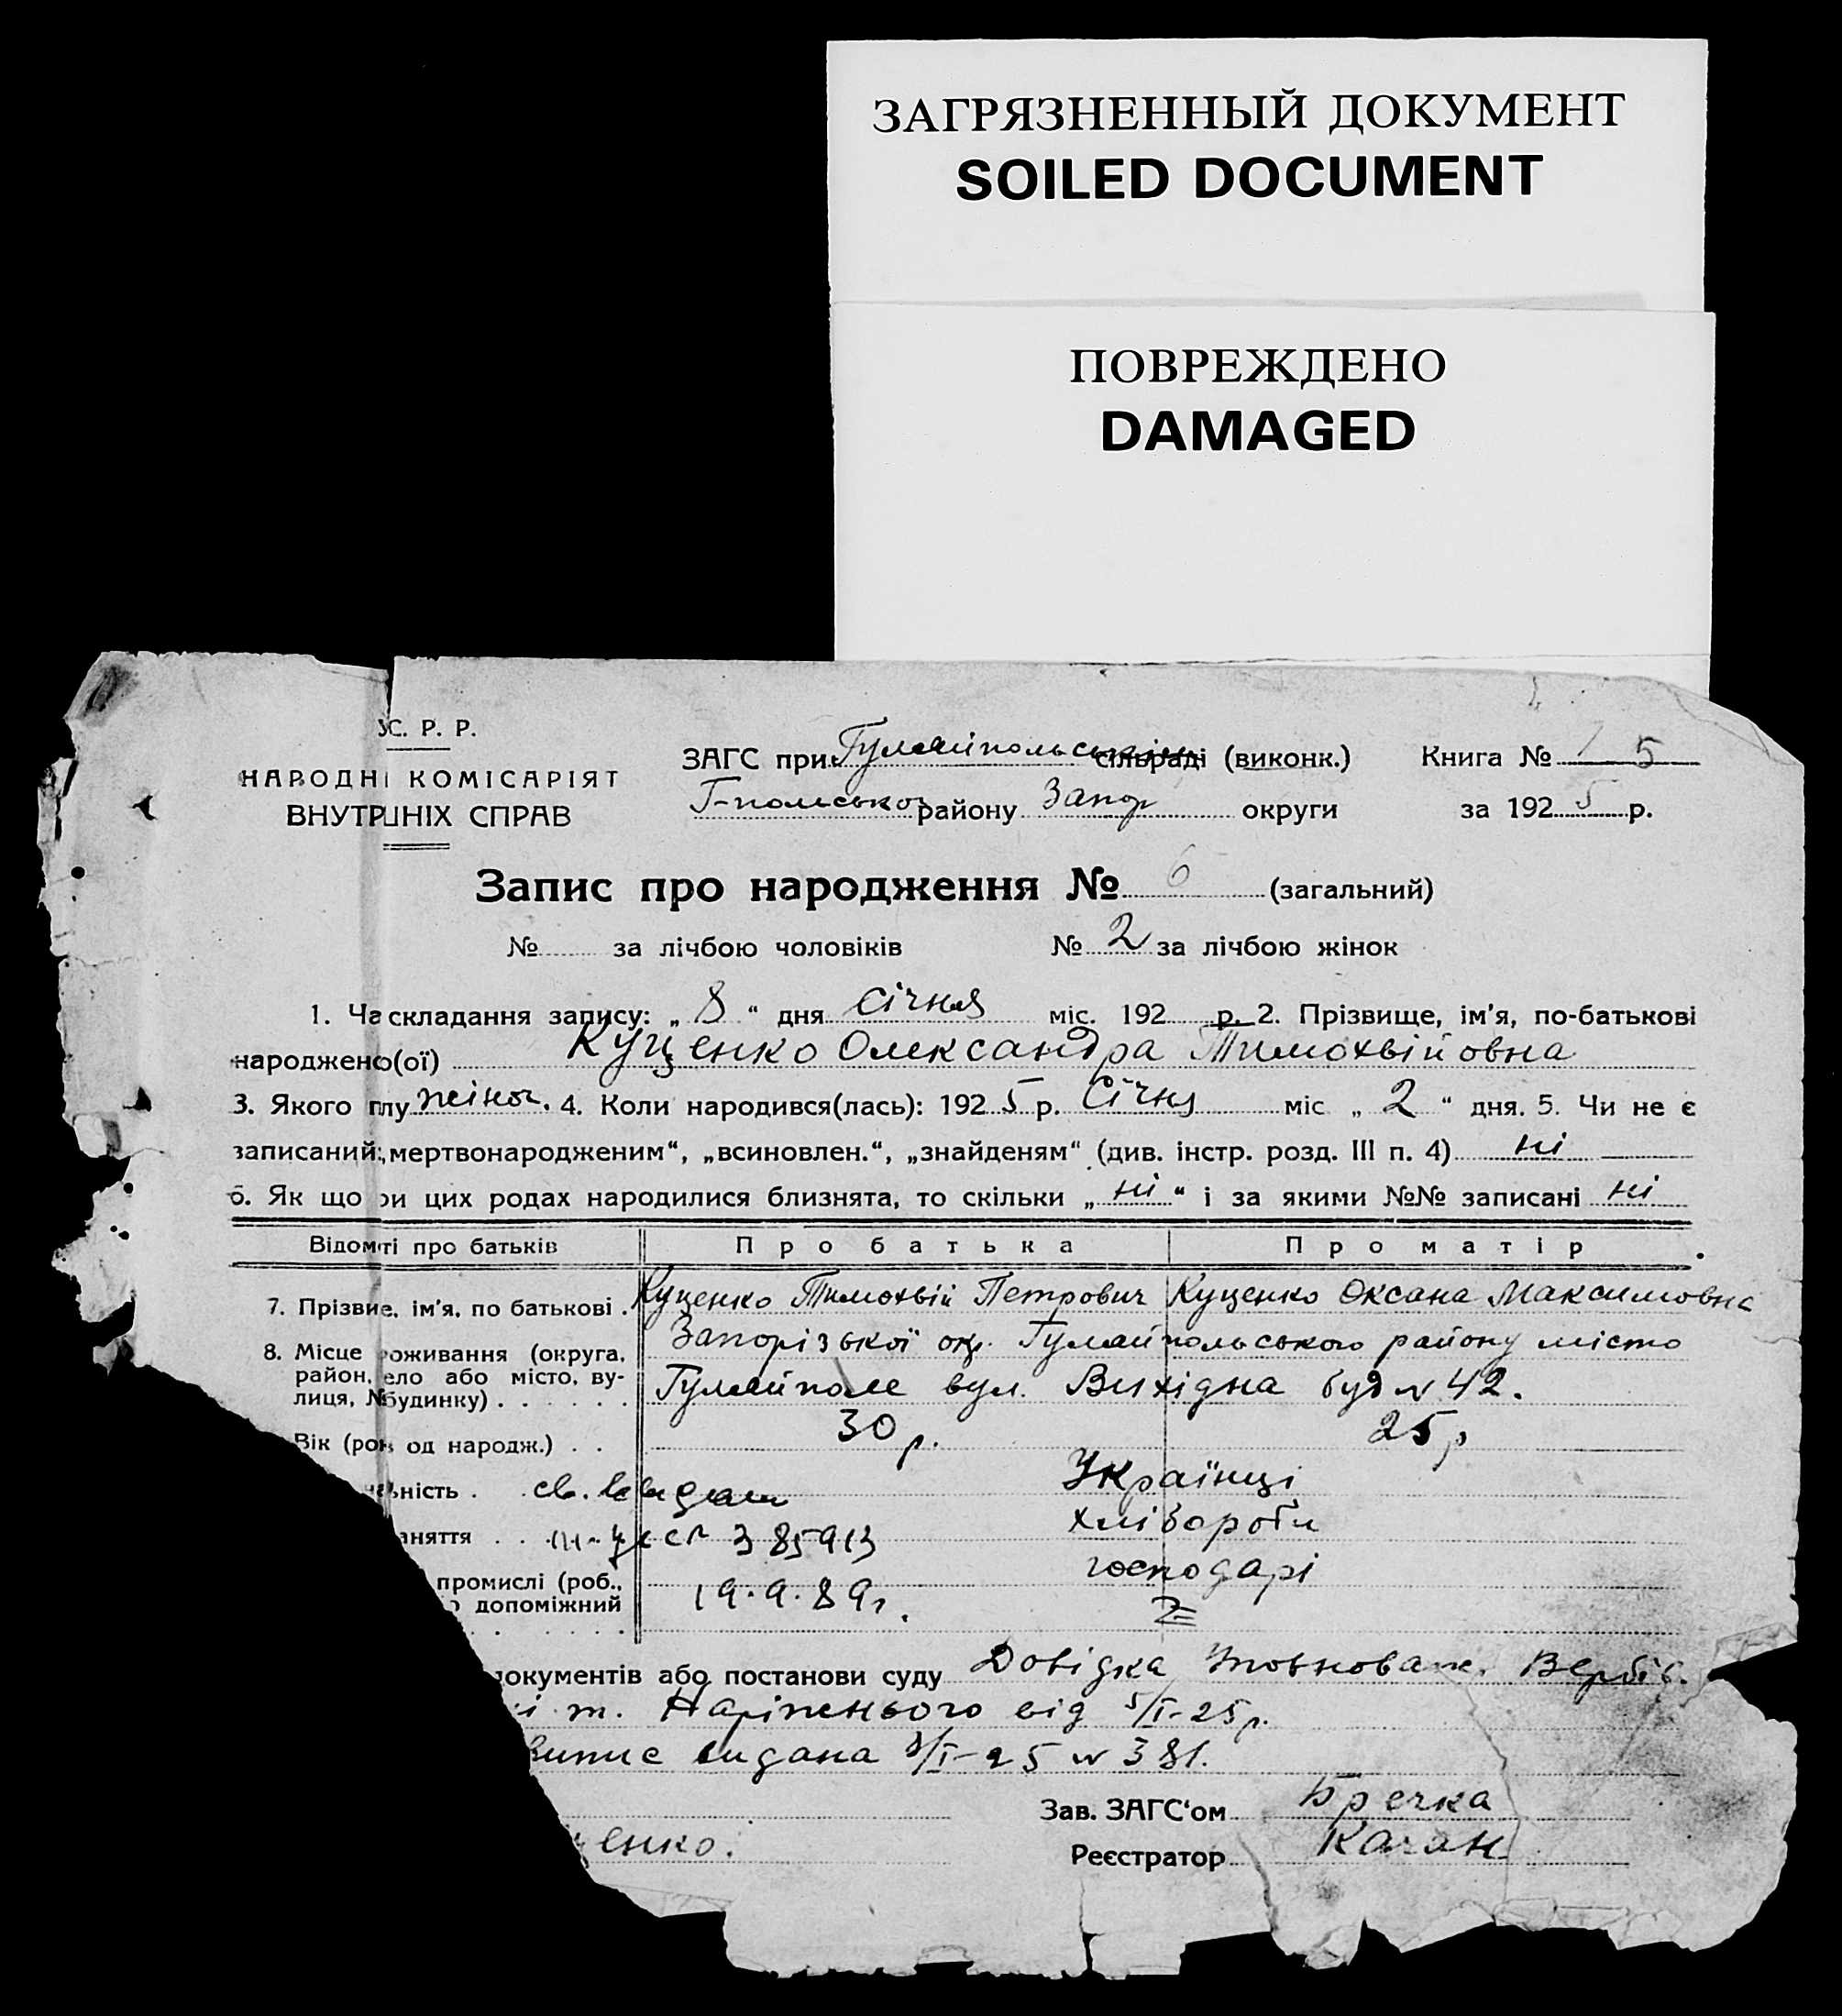 ЗАГРЯЗНЕННЫЙ ДОКУМЕНТ
SOILED DOCUMENT
ПОВРЕЖДЕНО
DAMAGED
УС. Р. Р.
НАРОДНІ КОМІСАРІЯТ
ВНУТРШНІХ СПРАВ
ЗАГС при Гуляйпольськім сільраді (виконк.)
Г-польського району Запор округи
Книга № 1 5
за 1925 р.
Запис про народження № 6 (загальний)
№ за лічбою чоловіків № 2 за лічбою жінок
1. Час складання запису: „ 8 “ дня січня міс. 192 р. 2. Прізвище, ім'я, по-батькові
народжено(ої) Куценко Олександра Тимохвійовна
3. Якого плу жіноч. 4. Коли народився(лась): 1925 р. Січня міс „ 2 “ дня. 5. Чи не є
записаний „мертвонародженим“, „всиновлен.“, „знайденям“ (див. інстр. розд. III п. 4) ні
6. Як що ри цих родах народилися близнята, то скільки „ ні “ і за якими №№ записані ні
Відомті про батьків Про батька Про матір
7. Прізвие, ім'я, по батькові . Куценко Тимохвій Петрович Куценко Оксана Максимовна
8. Місце роживання (округа, район, ело або місто, вулиця, № будинку) . . . . . .
Запорізької окр. Гуляйпольського району місто
Гуляйполе вул. Вихідна буд № 42.
Вік (рок од народж.) . . 30 р. 25 р
ність . св. Українці
аняття . . № 385913 хлібороби
промислі (роб., допоміжний
19.9.89г. господарі
2
документів або постанови суду Довідка Уповноваж. Вербів.
і т. Наріжнього від 5/I-25 р.
Випис видана 8/I-25 № 381.
Зав. ЗАГС‘ом Бречка
ценко. Реєстратор Каган